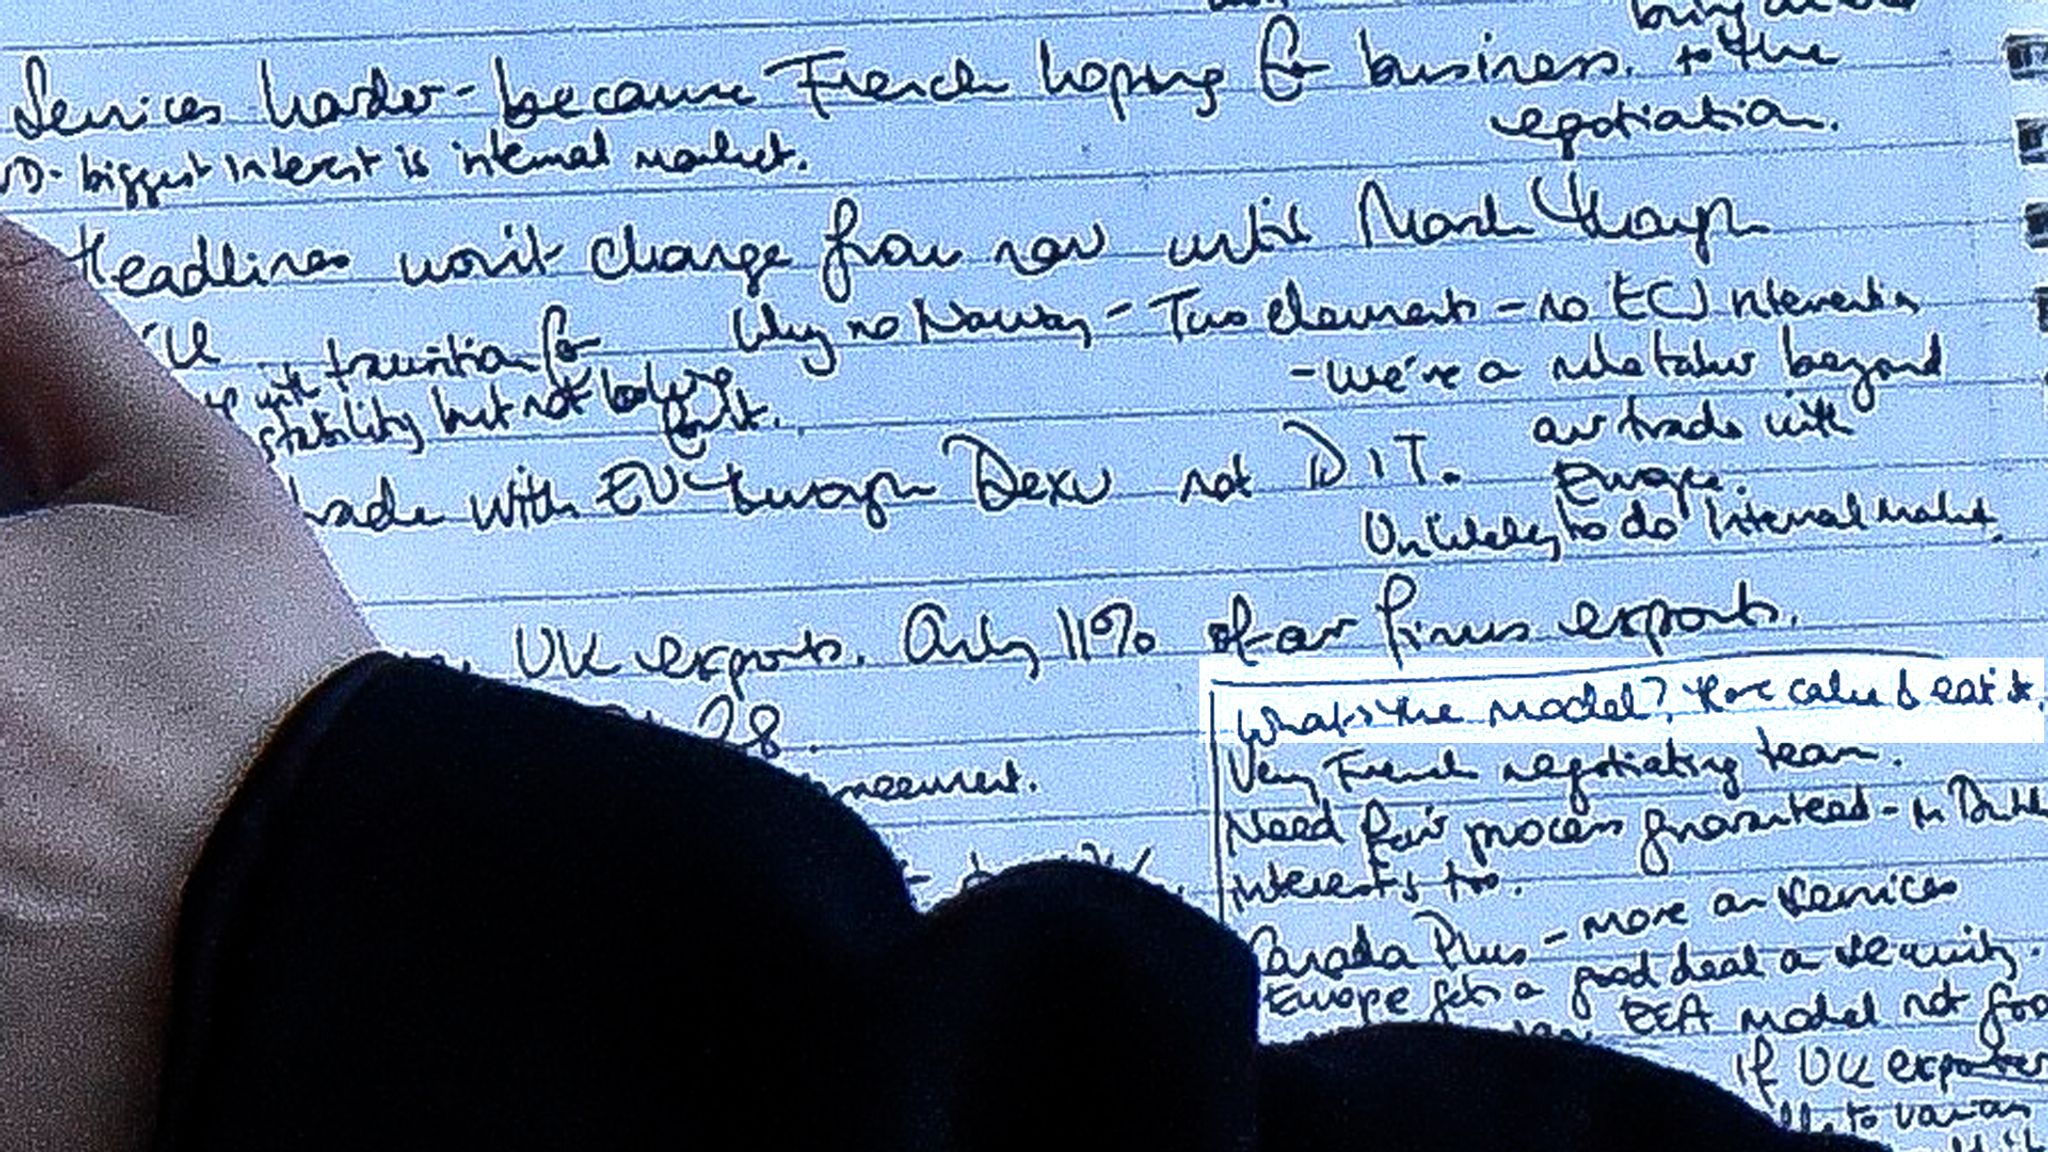 bring
Services harder - because French hoping for business. to the
negotiation.
- biggest interest is internal market.
Headlines won't change from now until March though
Why no Norway - Two elements - no ECJ intervention
with transition for
- we're a rule taker beyond
stability but not
our trade with
Europe.
trade with EU through Dexu not DIT.
Unlikely to do internal market.
UK exports. Only 11% of our firms exports.
28.
What's the model? Have cake & eat it.
Very French negotiating team.
Need fair process guaranteed -
interests too.
Canada Plus - more on services
Europe gets a good deal on security.
EEA model not
If UK exporter
to various